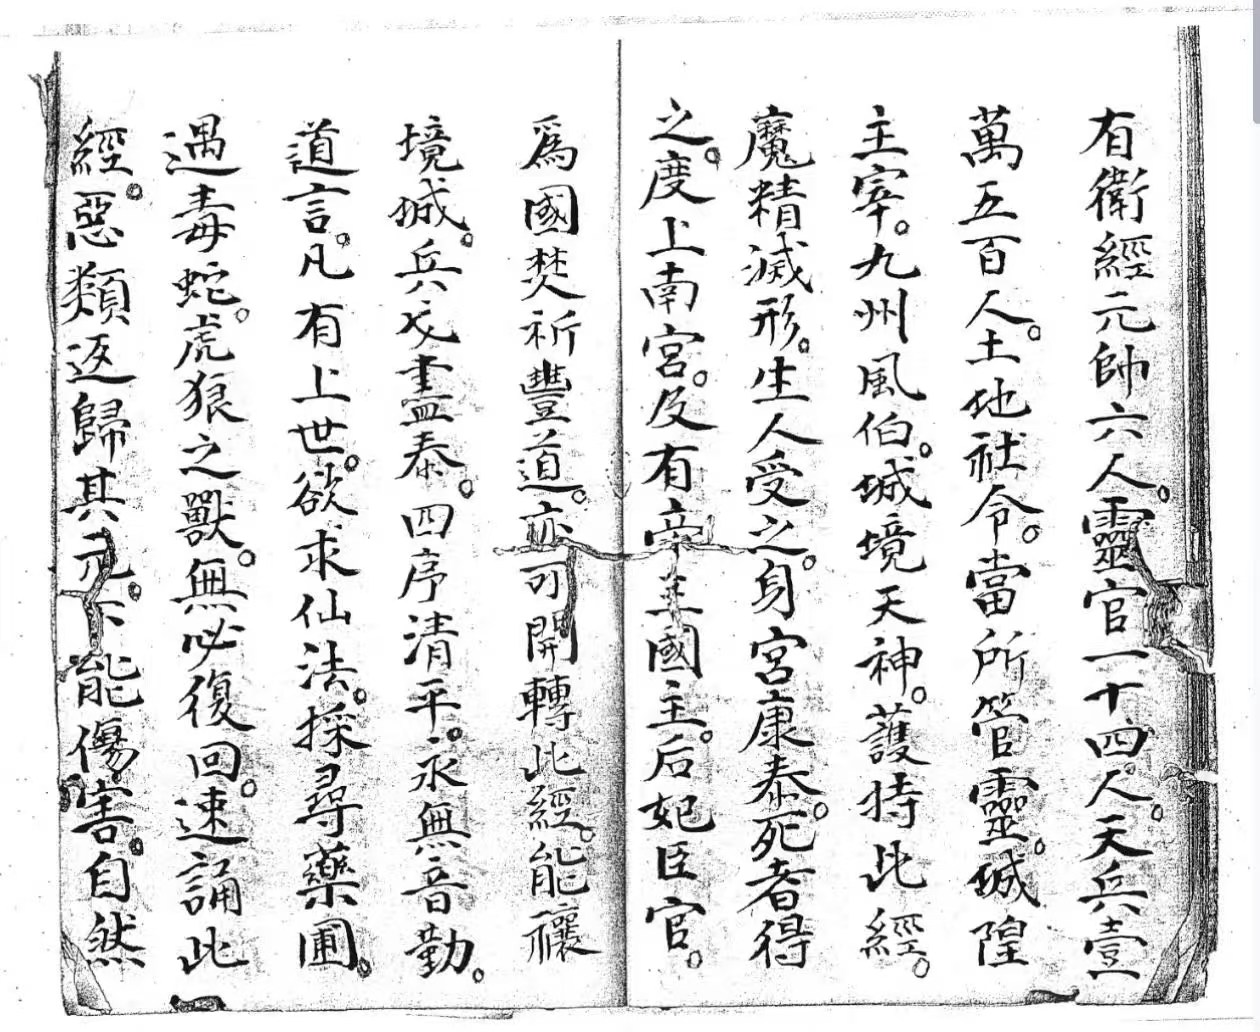 有衛經元帥六人。靈官一十四人。天兵壹
萬五百人。土地社令。當所管靈。城隍
主宰。九州風伯。城境天神。護持此經。
魔精滅形。生人受之。身宮康泰。死者得
之。度上南宮。及有帝主國主。后妃臣官。
爲國焚祈豐道。亦可開轉此經。能禳
境城。兵戈盡泰。四序清平。永無音勤。
道言。凡有上世。欲求仙法。採尋藥圃。
遇毒蛇。虎狼之獸。無必復回。速誦此
經。惡類返歸其元。不能傷害。自然